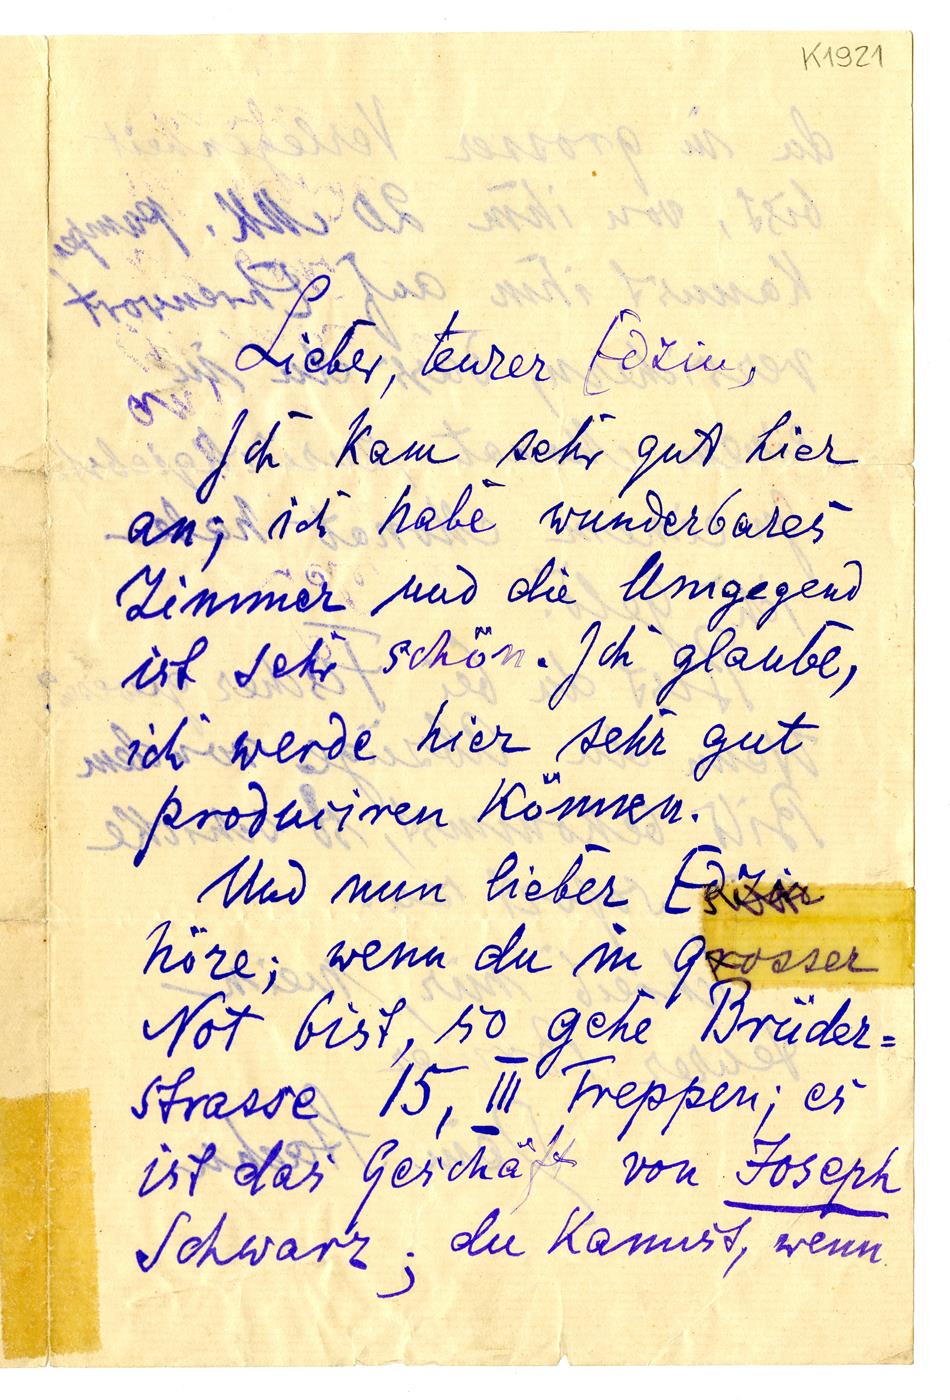 K1921
Lieber, teurer Edziu,
Ich kam sehr gut hier
an; ich habe wunderbares
Zimmer und die Umgegend
ist sehr schön. Ich glaube,
ich werde hier sehr gut
produciren können.
Und nun lieber Edziu
höre; wenn du in grosser
Not bist, so gehe Brüder=
strasse 15, III Treppen; es
ist das Geschäft von Joseph
Schwarz; du kannst, wenn